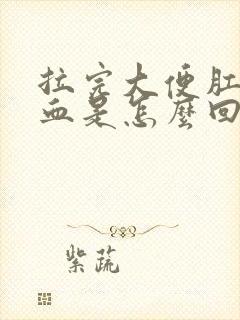 拉完大便肛
血是怎麼回
紫蔬